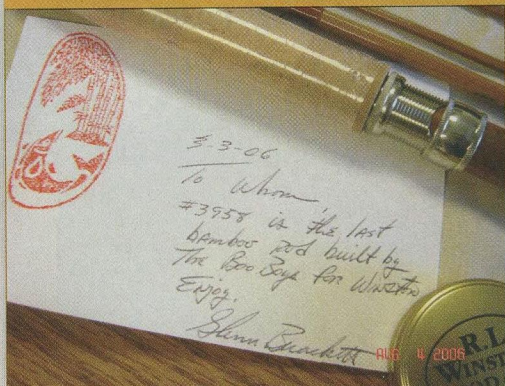 3-3-06
To Whom,
#3958 is the last
bamboo rod built by
The Boo Boys for Winston
Enjoy.
Glenn Brackett
AUG 4 2006
R.L.
WINST